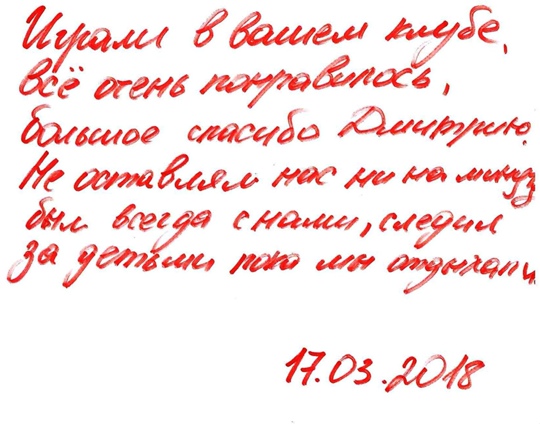 Играли в вашем клубе,
всё очень понравилось,
большое спасибо Дмитрию.
Не оставлял нас ни на мину
был всегда с нами, следил
за детьми пока мы отдыхали
17.03.2018